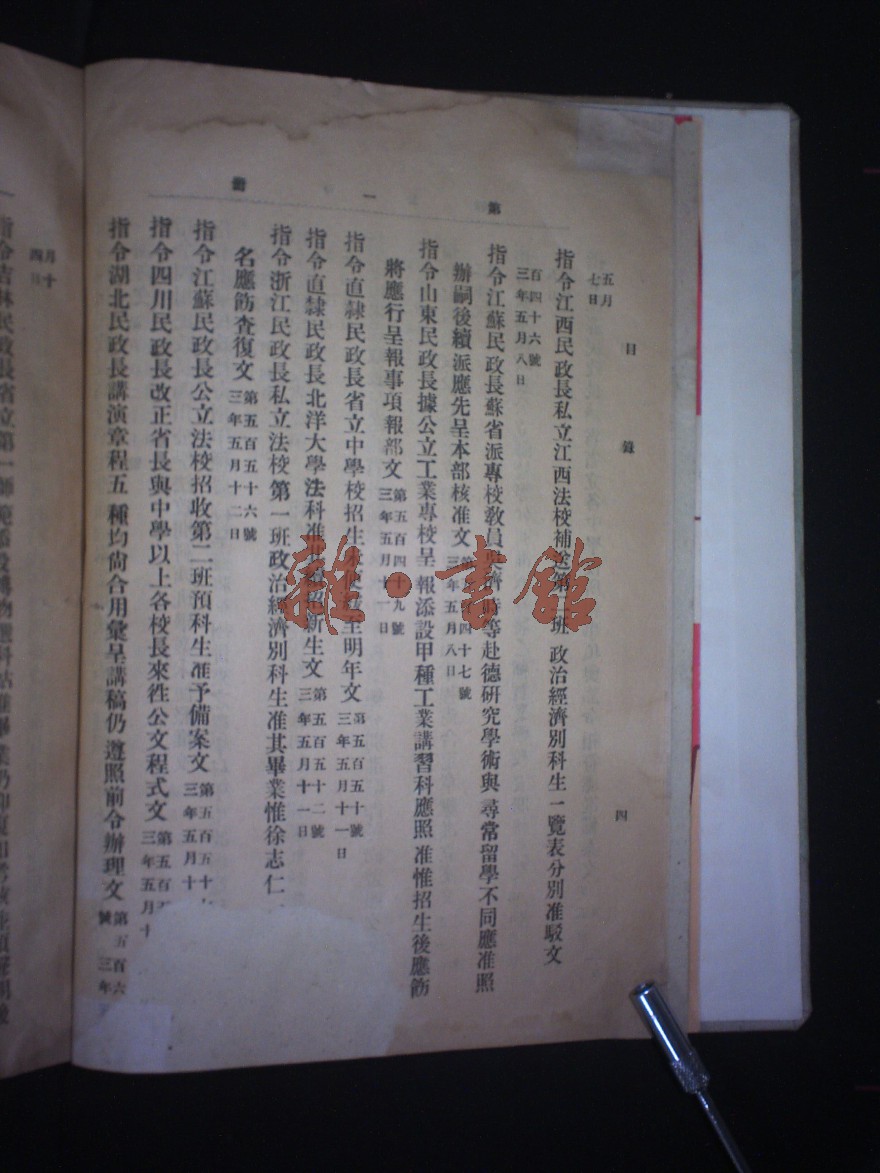 第一冊
目錄 四
五月
七日
指令江西民政長私立江西法校補送第一班政治經濟別科生一覽表分別准駁文
百四十六號
三年五月八日
指令江蘇民政長蘇省派專校教員 等赴德研究學術與尋常留學不同應准照
辦嗣後續派應先呈本部核准文 四十七號
三年五月八日
指令山東民政長據公立工業專校呈報添設甲種工業講習科應照准惟招生後應飭
將應行呈報事項報部文 第五百四十九號
三年五月十一日
指令直隸民政長省立中學校招生 至明年文 第五百五十號
三年五月十一日
指令直隸民政長北洋大學法科准 續招新生文 第五百五十二號
三年五月十一日
指令浙江民政長私立法校第一班政治經濟別科生准其畢業惟徐志仁
名應飭查復文 第五百五十六號
三年五月十二日
指令江蘇民政長公立法校招收第二班預科生准予備案文 第五百五十
三年五月十
指令四川民政長改正省長與中學以上各校長來徃公文程式文 第五百
三年五月十
指令湖北民政長講演章程五種均尙合用彙呈講稿仍遵照前令辦理文 第五百六
號 三年
月十
四日
指令吉林民政長省立第一師範